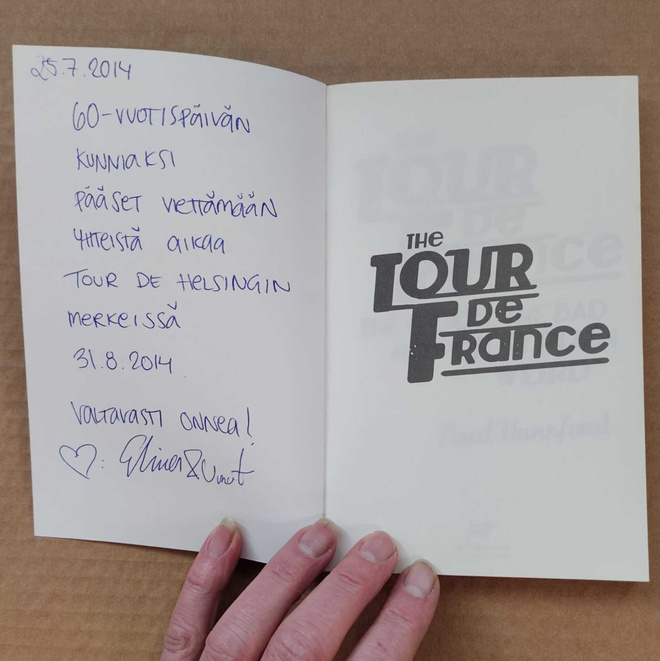 25.7.2014
60-VUOTISPÄIVÄN
KUNNIAKSI
PÄÄSET VIETTÄMÄÄN
YHTEISTÄ AIKAA
TOUR DE HELSINGIN
MERKEISSÄ
31.8.2014
VALTAVASTI ONNEA!
♡: Elina &
THE
TOUR
DE
FRANCE